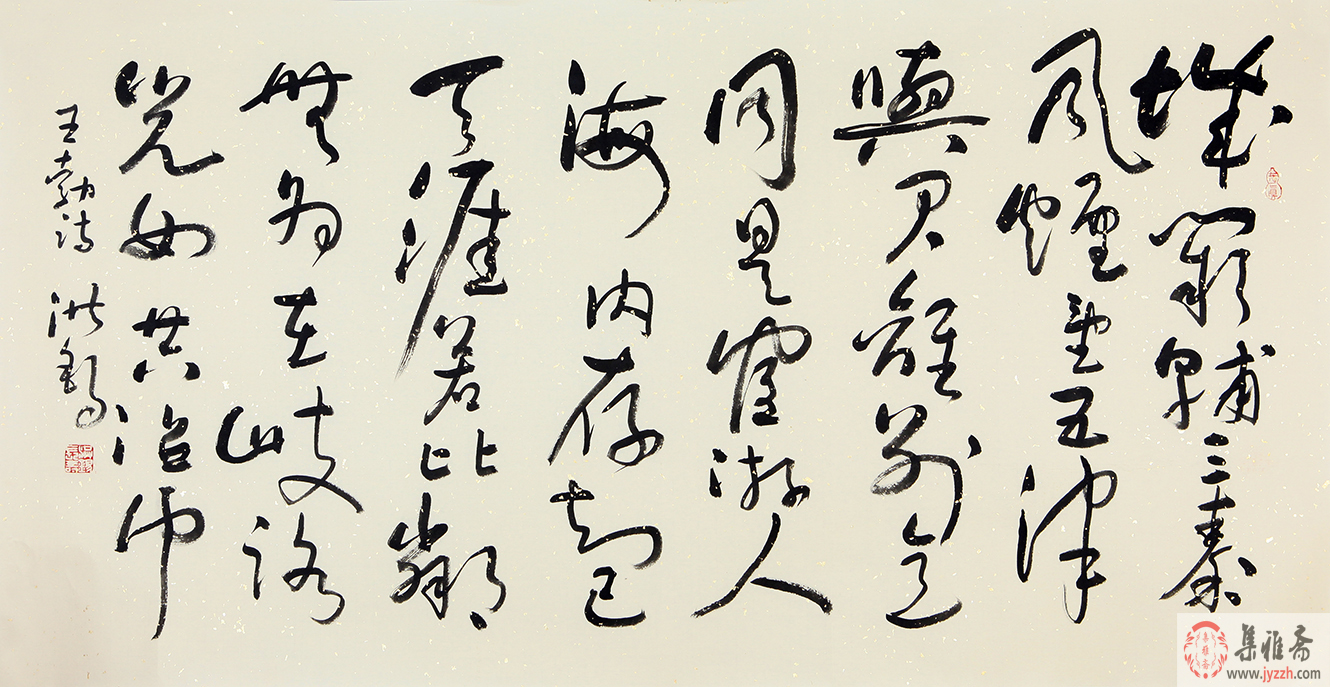 城闕輔三秦
风煙望五津
與君離别意
同是宦游人
海内存知己
天涯若比鄰
無为在岐路
兒女共沾巾
王勃诗 洪
集雅斋
www.jyzzh.com